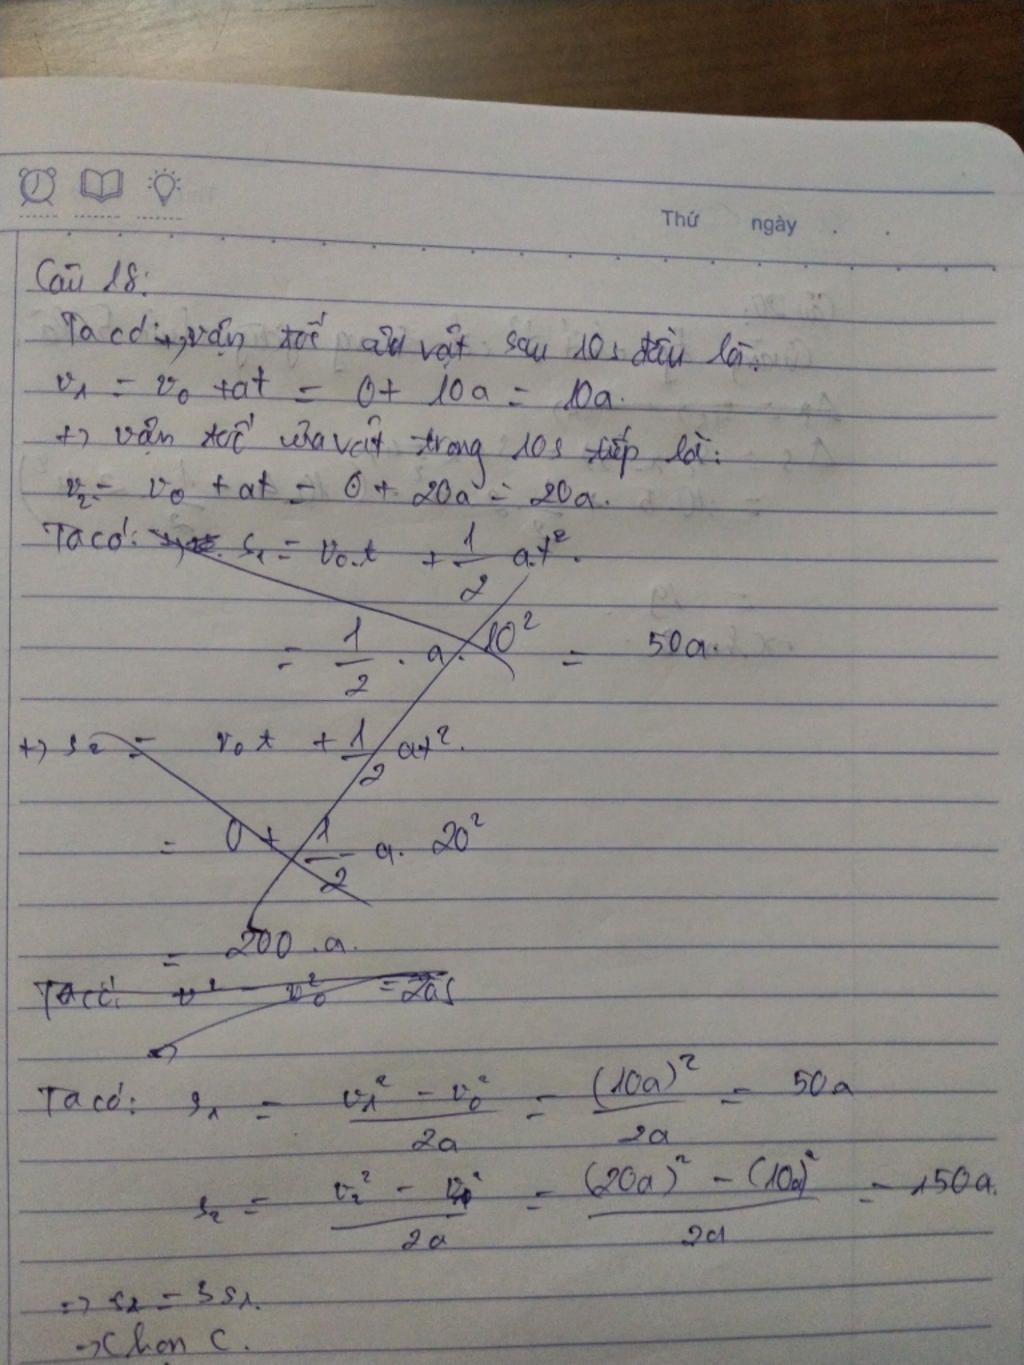 Thứ ngày . .
Câu 18:
Ta có: +, vận tốc của vật sau 10s đầu là:
v₁ = v₀ + at = 0 + 10a = 10a.
+, vận tốc của vật trong 10s tiếp là:
v₂ = v₀ + at = 0 + 20a = 20a.
Ta có: s₁ = v₀.t + 1/2 a.t².
= 1/2 . a . 10² = 50a.
+, s₂ = v₀t + 1/2 at².
= 0 + 1/2 a. 20²
= 200 .a.
Ta có: v² - v₀² = 2as
Ta có: s₁ = (v₁² - v₀²)/2a = (10a)²/2a = 50a
s₂ = (v₂² - v₁²)/2a = ((20a)² - (10a)²)/2a = 150a.
=> s₂ = 3s₁.
→ Chọn C.